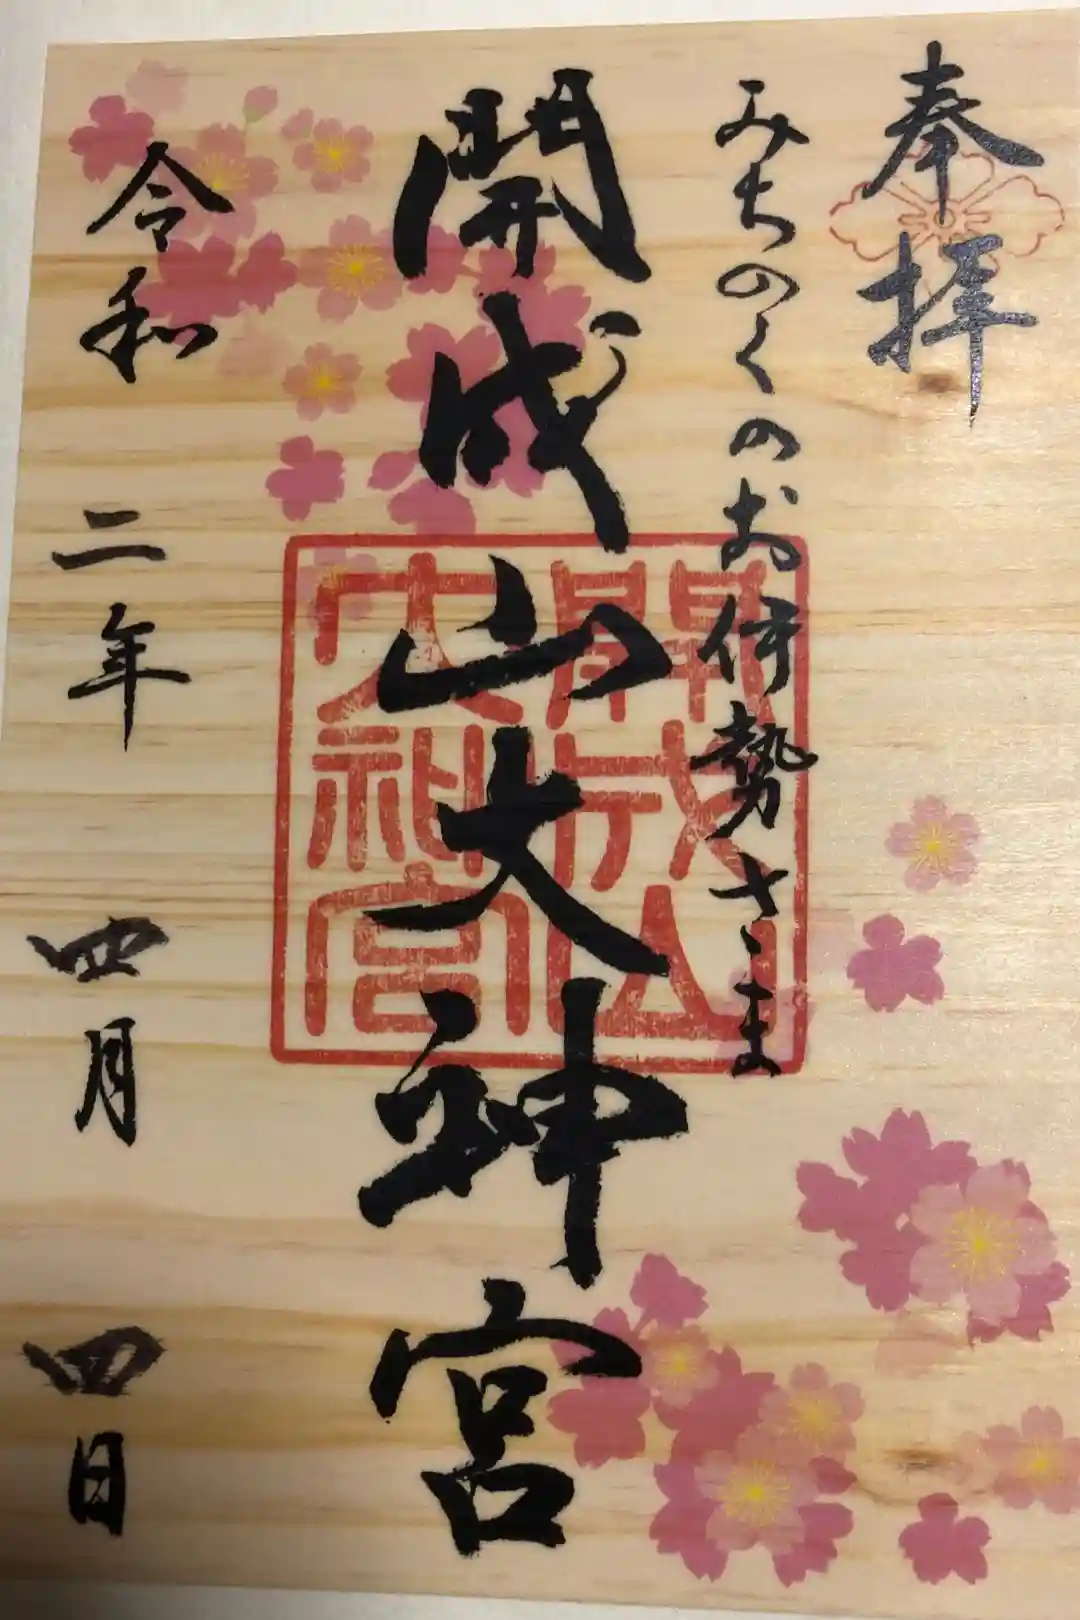 奉拝
みちのくのお伊勢さま
開成山大神宮
開成山
大神宮
令和二年四月四日